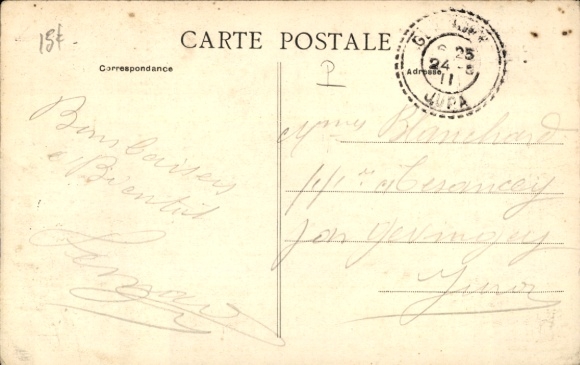 15€
CARTE POSTALE
Correspondance
Adresse
P
25
24
11
JURA
Bons baisers
e Bientôt
Mmes Blanchard
à Cesancey
par Gevingey
Jura